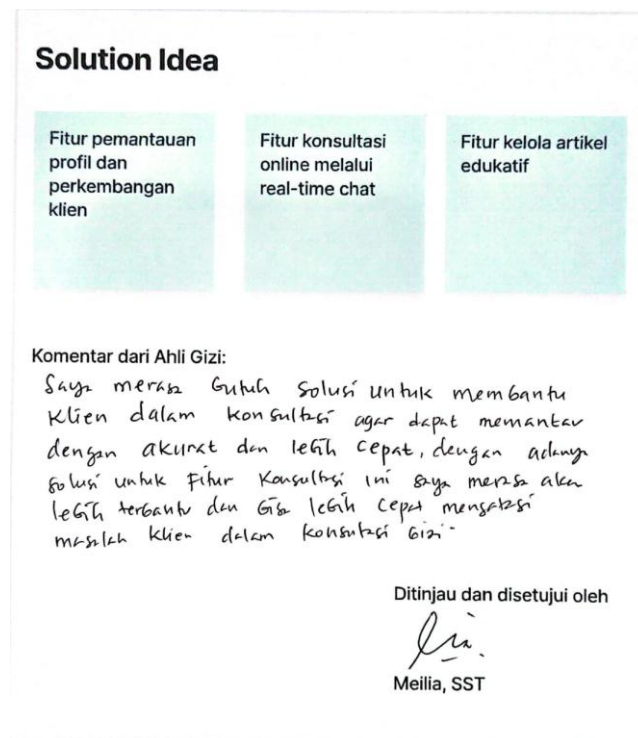 Solution Idea
Fitur pemantauan
profil dan
perkembangan
klien
Fitur konsultasi
online melalui
real-time chat
Fitur kelola artikel
edukatif
Komentar dari Ahli Gizi:
Saya merasa butuh solusi untuk membantu
Klien dalam konsultasi agar dapat memantau
dengan akurat dan lebih cepat, dengan adanya
solusi untuk Fitur Konsultasi ini saya merasa akan
lebih terbantu dan bisa lebih cepat mengatasi
masalah klien dalam konsultasi Gizi.
Ditinjau dan disetujui oleh
Meilia, SST